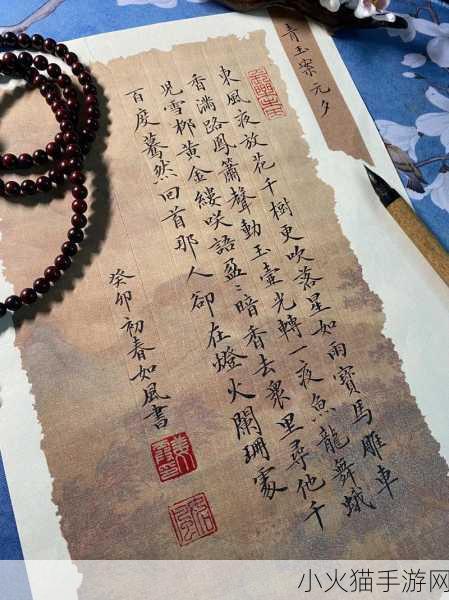 青玉案元夕
東風夜放花千樹更吹落星如雨寶馬雕車
香滿路鳳簫聲動玉壺光轉一夜魚龍舞蛾
兒雪柳黃金縷咲語盈〻暗香去衆里尋他千
百度驀然回首那人卻在燈火闌珊處
癸卯初春如風書
小火猫手游网